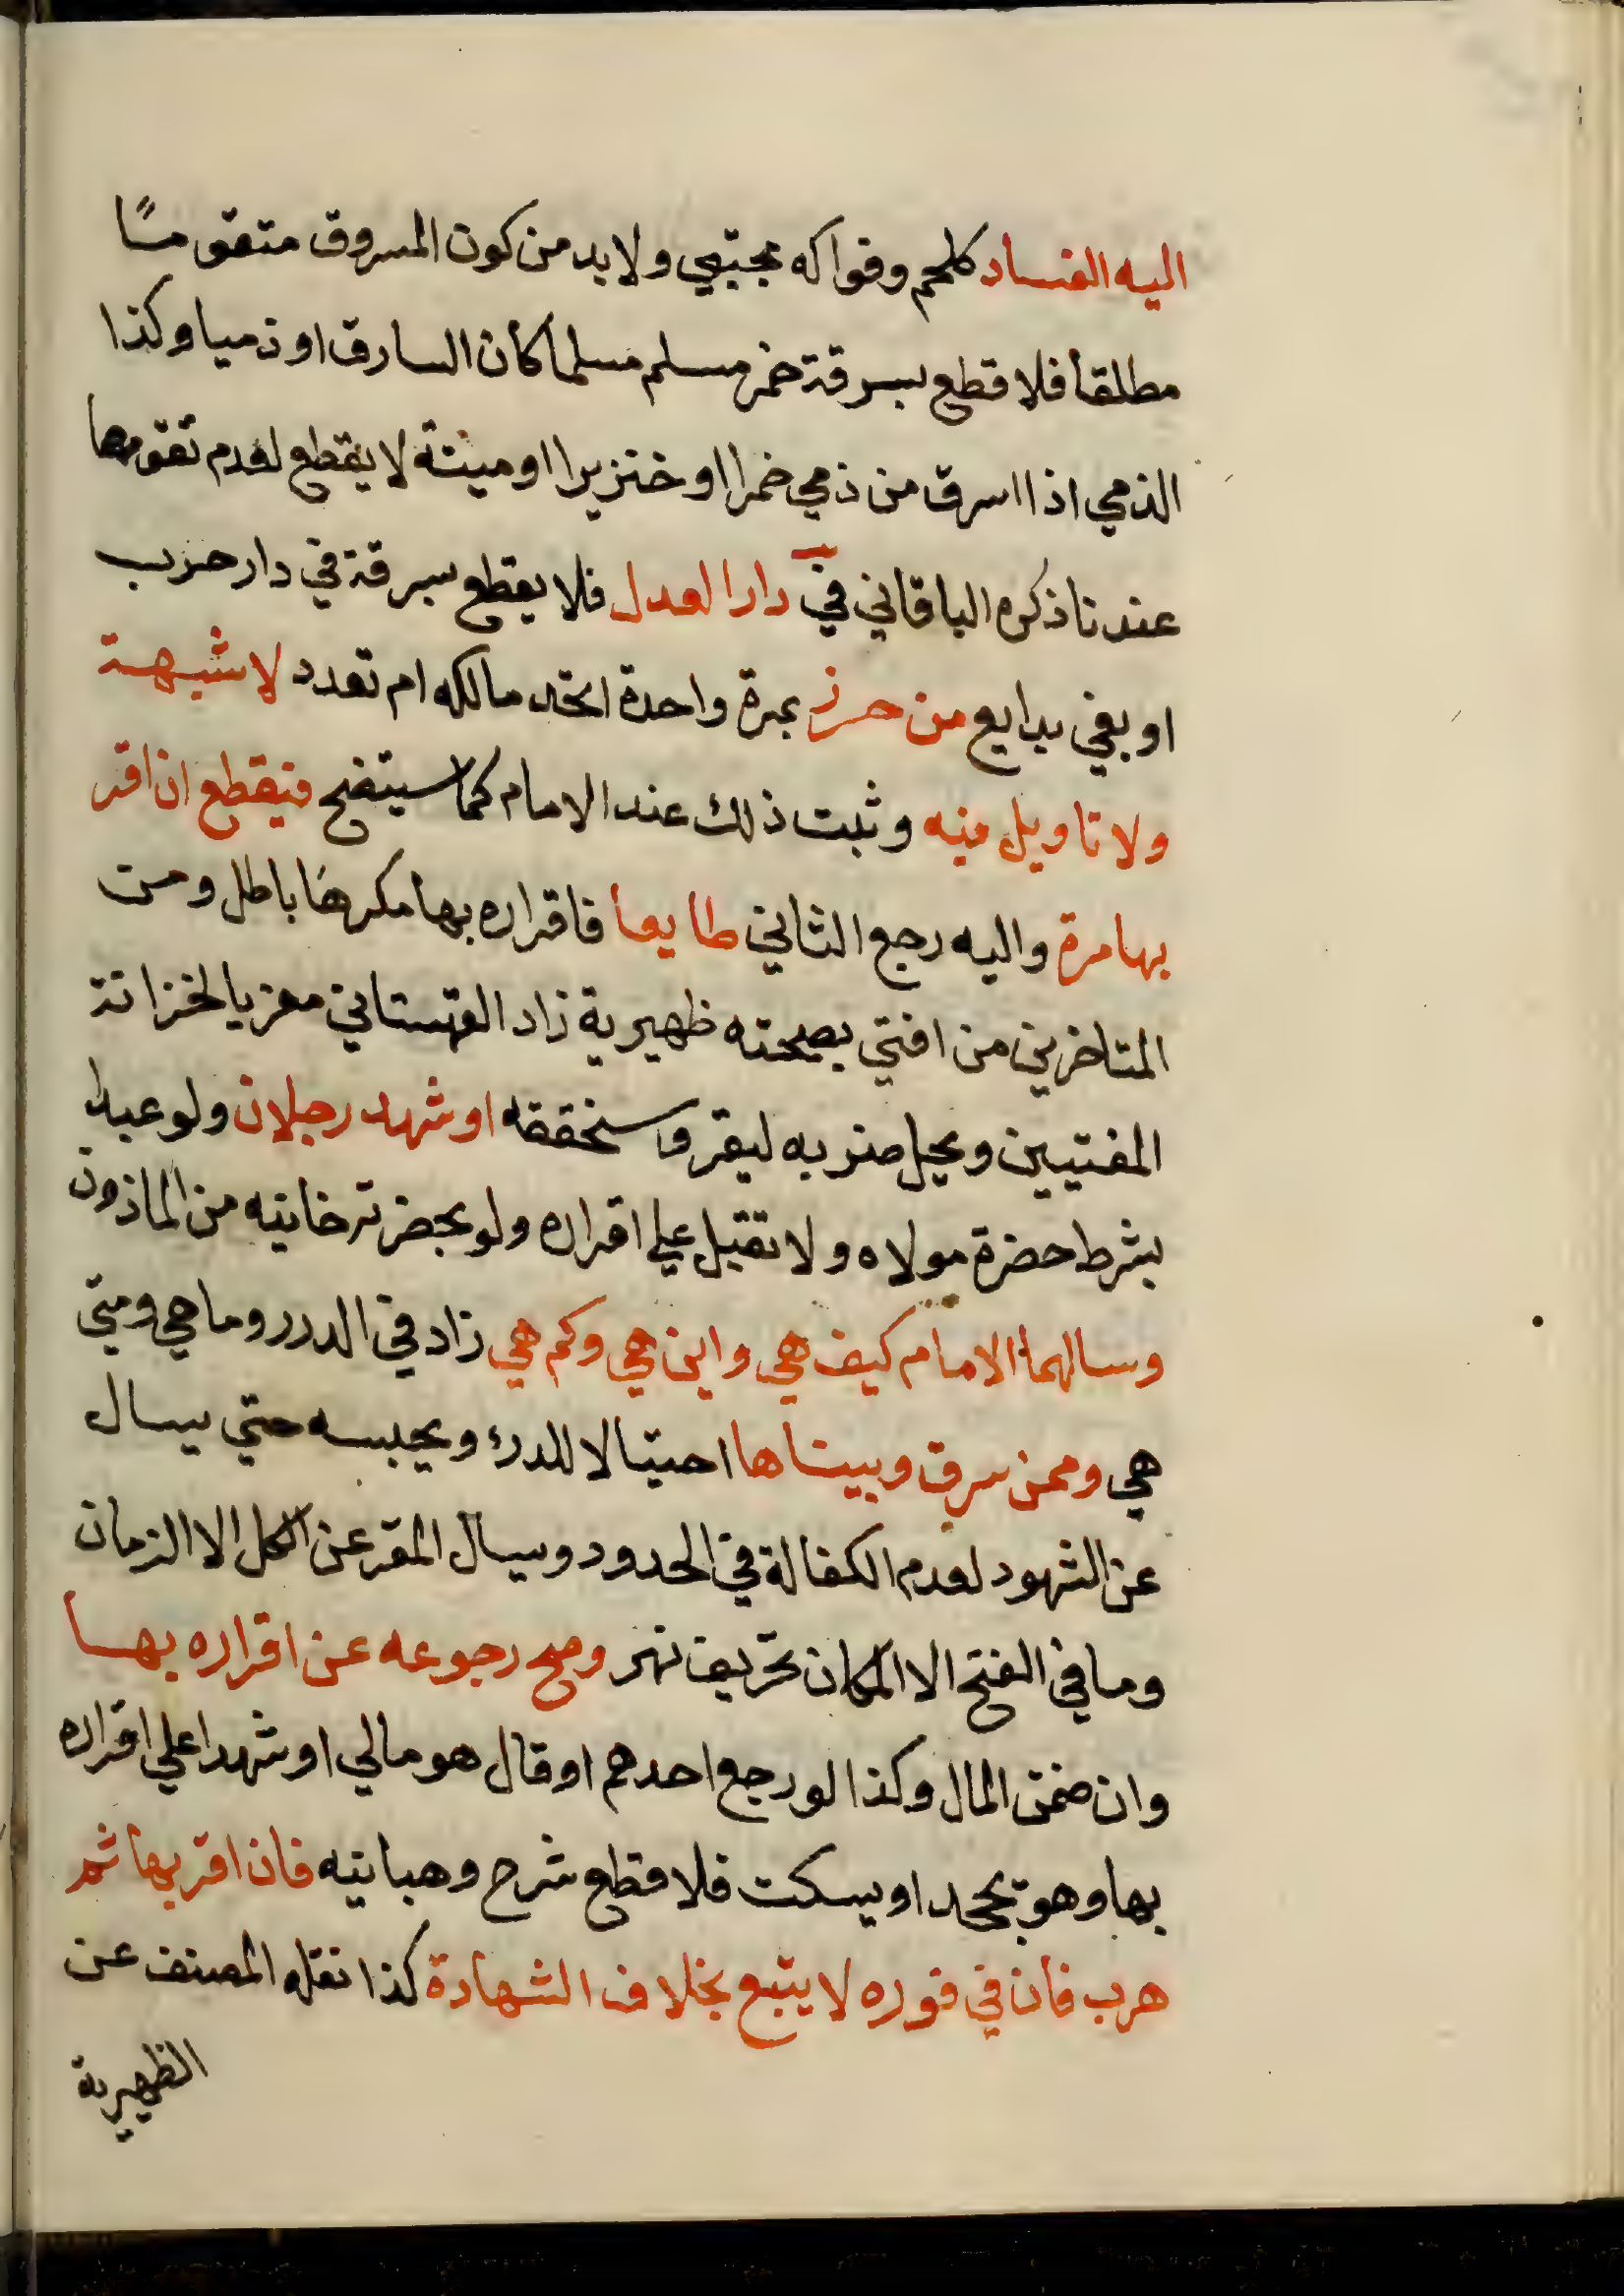 اليه الفساد كلحم وفواكه مجتبي ولا بد من كون المسروق متقوما
مطلقا فلا قطع بسرقة خمر مسلم مسلما كان السارق او ذميا وكذا
الذمي اذا اسرق من ذمي خمرا او خنزيرا او ميتة لا يقطع لعدم تقومها
عندنا ذكره الباقاني في دار العدل فلا يقطع بسرقة في دار حرب
او بغي بدايع من حرز بمرة واحدة اتحد مالكه ام تعدد لا شبهة
ولا تاويل فيه وثبت ذلك عند الامام كما سيتضح فيقطع ان اقر
بها مرة واليه رجع الثاني طايعا فاقراره بها مكرها باطل ومن
المتاخرين من افتي بصحته ظهيرية زاد القهستاني معزيا لخزانة
المفتيين ويحل ضربه ليقر وسنحققه او شهد رجلان ولو عبدا
بشرط حضرة مولاه ولا تقبل علي اقراره ولو بحضرته خانيه من الماذون
وسالهما الامام كيف هي واين هي وكم هي زاد في الدرر وما هي ومتي
هي وممن سرق وبيناها احتيالا للدرء ويحبسه حتي يسال
عن الشهود لعدم الكفالة في الحدود ويسال المقر عن الكل الا الزمان
وما في الفتح الا المكان تحريف نهر وصح رجوعه عن اقراره بها
وان ضمن المال وكذا لو رجع احدهم او قال هو مالي او شهدا علي اقراره
بها وهو يجحد او يسكت فلا قطع شرح وهبانيه فان اقر بها ثم
هرب فان في فوره لا يتبع بخلاف الشهادة كذا نقله المصنف عن
الظهيرية